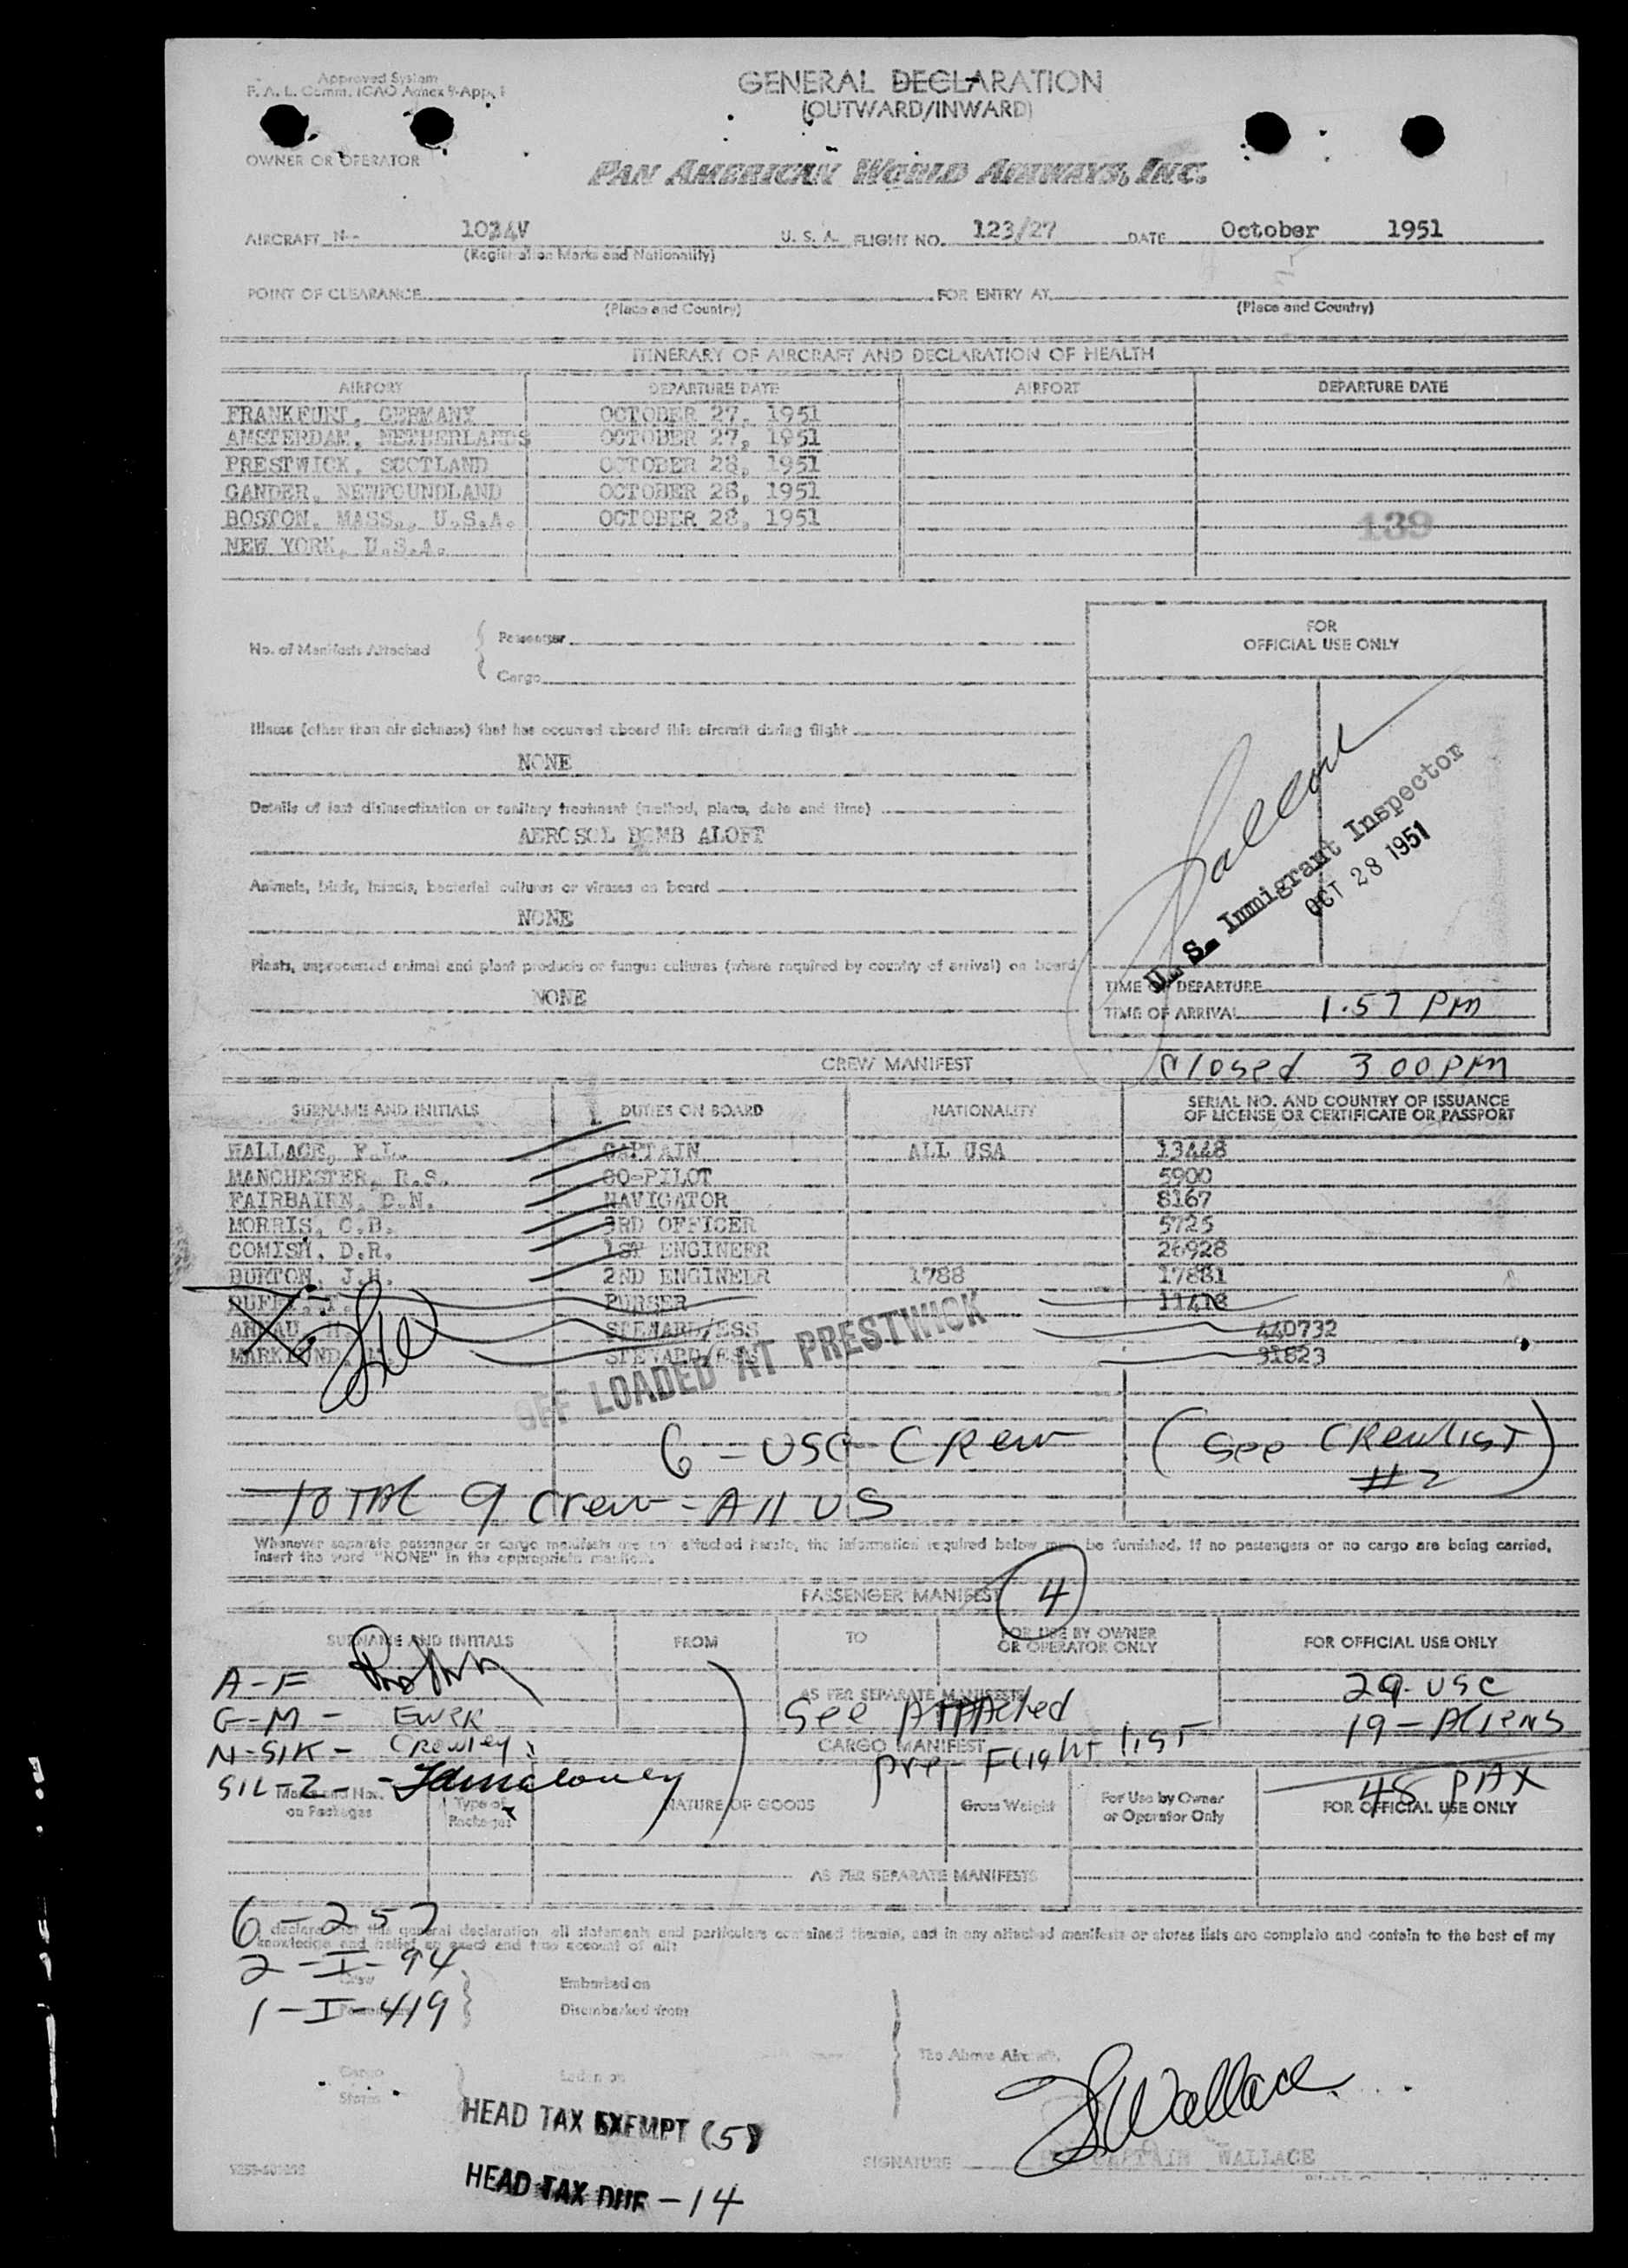 Approved System
F. A. L. Comm. ICAO Annex 9-App. 1
GENERAL DECLARATION
(OUTWARD/INWARD)
OWNER OR OPERATOR
PAN AMERICAN WORLD AIRWAYS, INC.
AIRCRAFT N-- 1034V U. S. A. FLIGHT NO. 123/27 DATE October 1951
(Registration Marks and Nationality)
POINT OF CLEARANCE FOR ENTRY AT
(Place and Country) (Place and Country)
ITINERARY OF AIRCRAFT AND DECLARATION OF HEALTH
AIRPORT DEPARTURE DATE AIRPORT DEPARTURE DATE
FRANKFURT, GERMANY OCTOBER 27, 1951
AMSTERDAM, NETHERLANDS OCTOBER 27, 1951
PRESTWICK, SCOTLAND OCTOBER 28, 1951
GANDER, NEWFOUNDLAND OCTOBER 28, 1951
BOSTON, MASS., U.S.A. OCTOBER 28, 1951
139
NEW YORK, U.S.A.
FOR
OFFICIAL USE ONLY
No. of Manifests Attached
Passenger
Cargo
Illness (other than air sickness) that has occurred aboard this aircraft during flight
NONE
Details of last disinsectization or sanitary treatment (method, place, date and time)
AEROSOL BOMB ALOFT
Animals, birds, insects, bacterial cultures or viruses on board
NONE
Plants, unprocessed animal and plant products or fungus cultures (where required by country of arrival) on board
NONE
U. S. Immigrant Inspector
OCT 28 1951
TIME OF DEPARTURE
TIME OF ARRIVAL 1.57 PM
CREW MANIFEST
Closed 3 00 PM
SURNAME AND INITIALS DUTIES ON BOARD NATIONALITY SERIAL NO. AND COUNTRY OF ISSUANCE
OF LICENSE OR CERTIFICATE OR PASSPORT
WALLACE, F.L. CAPTAIN ALL USA 13448
MANCHESTER, R.S. CO-PILOT 5900
FAIRBAIRN, D.N. NAVIGATOR 8167
MORRIS, C.B. 3RD OFFICER 5725
COMISH, D.R. 1ST ENGINEER 26928
BURTON, J.H. 2ND ENGINEER 1788 17881
PURSER
STEWARD/ESS 440732
STEWARD/ESS 31823
OFF LOADED AT PRESTWICK
6 - USC - CREW (See CREWLIST
#2)
TOTAL 9 Crew - All US
Whenever separate passenger or cargo manifests are not attached hereto, the information required below must be furnished. If no passengers or no cargo are being carried,
insert the word "NONE" in the appropriate manifest.
PASSENGER MANIFEST 4
SURNAME AND INITIALS FROM TO FOR USE BY OWNER
OR OPERATOR ONLY FOR OFFICIAL USE ONLY
A-F
29 - USC
AS PER SEPARATE MANIFESTS
G-M - EWEK See Attached
19 - ALIENS
N-SIK - Crowley
CARGO MANIFEST
pre - Flight list
SIL-Z -
48 PAX
Marks and Nos.
on Packages Type of
Packages NATURE OF GOODS Gross Weight For Use by Owner
or Operator Only FOR OFFICIAL USE ONLY
AS PER SEPARATE MANIFESTS
6 - 257
I declare that this general declaration, all statements and particulars contained therein, and in any attached manifests or stores lists are complete and contain to the best of my
knowledge and belief an exact and true account of all:
2 - I - 94
Crew Embarked on
1 - I - 419
Passengers Disembarked from
The Above Aircraft.
Cargo Laden on
Stores
HEAD TAX EXEMPT (5)
FLWallace
SIGNATURE CAPTAIN WALLACE
HEAD TAX DUE - 14